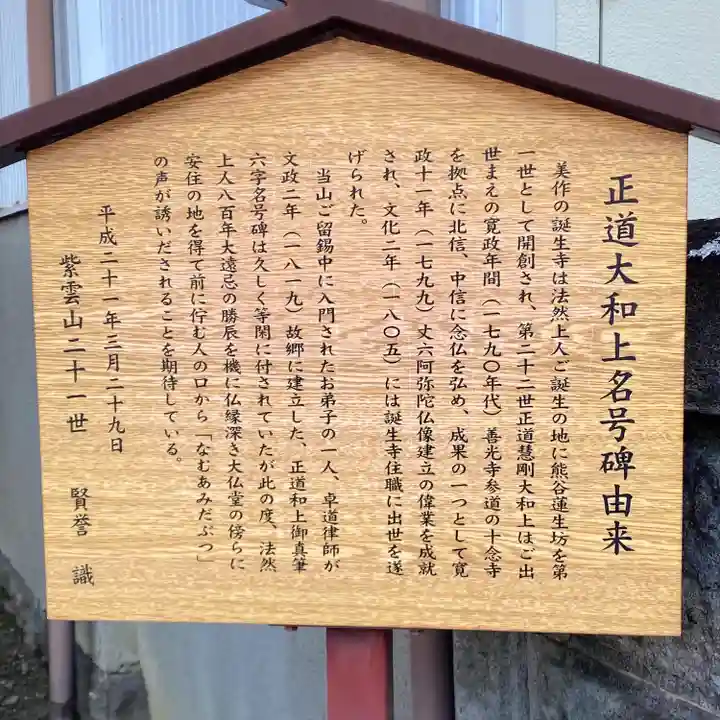 正道大和上名号碑由来
美作の誕生寺は法然上人ご誕生の地に熊谷蓮生坊を第
一世として開創され、第二十二世正道慧剛大和上はご出
世まえの寛政年間（一七九〇年代）善光寺参道の十念寺
を拠点に北信、中信に念仏を弘め、成果の一つとして寛
政十一年（一七九九）丈六阿弥陀仏像建立の偉業を成就
され、文化二年（一八〇五）には誕生寺住職に出世を遂
げられた。
当山ご留錫中に入門されたお弟子の一人、卓道律師が
文政二年（一八一九）故郷に建立した、正道和上御真筆
六字名号碑は久しく等閑に付されていたが此の度、法然
上人八百年大遠忌の勝辰を機に仏縁深き大仏堂の傍らに
安住の地を得て前に佇む人の口から「なむあみだぶつ」
の声が誘いだされることを期待している。
平成二十一年三月二十九日
紫雲山二十一世　賢誉　識